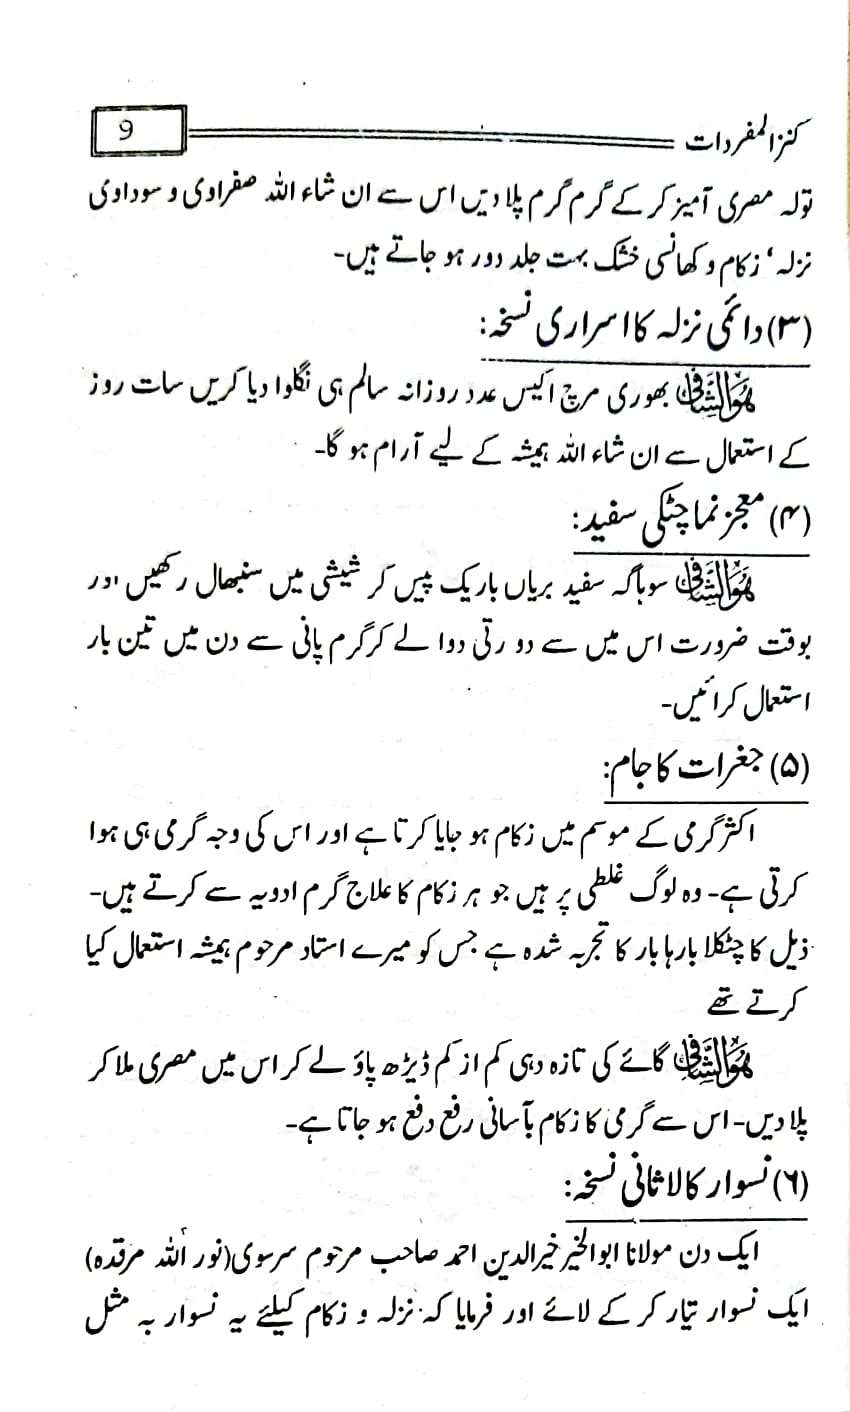 کنزالمفردات
9
تولہ مصری آمیز کر کے گرم گرم پلا دیں اس سے ان شاء اللہ صفراوی و سوداوی
نزلہ‘ زکام و کھانسی خشک بہت جلد دور ہو جاتے ہیں-
(۳) دائمی نزلہ کا اسراری نسخہ:
ھوالشافی بھوری مرچ اکیس عدد روزانہ سالم ہی نگلوا دیا کریں سات روز
کے استعمال سے ان شاء اللہ ہمیشہ کے لیے آرام ہو گا-
(۴) معجز نما چٹکی سفید:
ھوالشافی سوہاگہ سفید بریاں باریک پیس کر شیشی میں سنبھال رکھیں اور
بوقت ضرورت اس میں سے دو رتی دوا لے کر گرم پانی سے دن میں تین بار
استعمال کرائیں-
(۵) جغرات کا جام:
اکثر گرمی کے موسم میں زکام ہو جایا کرتا ہے اور اس کی وجہ گرمی ہی ہوا
کرتی ہے- وہ لوگ غلطی پر ہیں جو ہر زکام کا علاج گرم ادویہ سے کرتے ہیں-
ذیل کا چٹکلا بارہا بار کا تجربہ شدہ ہے جس کو میرے استاد مرحوم ہمیشہ استعمال کیا
کرتے تھے
ھوالشافی گائے کی تازہ دہی کم از کم ڈیڑھ پاؤ لے کر اس میں مصری ملا کر
پلا دیں- اس سے گرمی کا زکام بآسانی رفع دفع ہو جاتا ہے-
(۶) نسوار کا لاثانی نسخہ:
ایک دن مولانا ابوالخیر خیرالدین احمد صاحب مرحوم سرسوی(نور اللہ مرقدہ)
ایک نسوار تیار کر کے لائے اور فرمایا کہ نزلہ و زکام کیلئے یہ نسوار بہ مثل